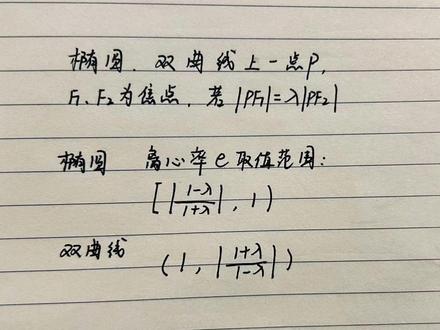 椭圆、双曲线上一点P,
F₁、F₂为焦点,若|PF₁|=λ|PF₂|
椭圆 离心率e取值范围:
[|\frac{1-λ}{1+λ}|, 1)
双曲线 (1, |\frac{1+λ}{1-λ}|)